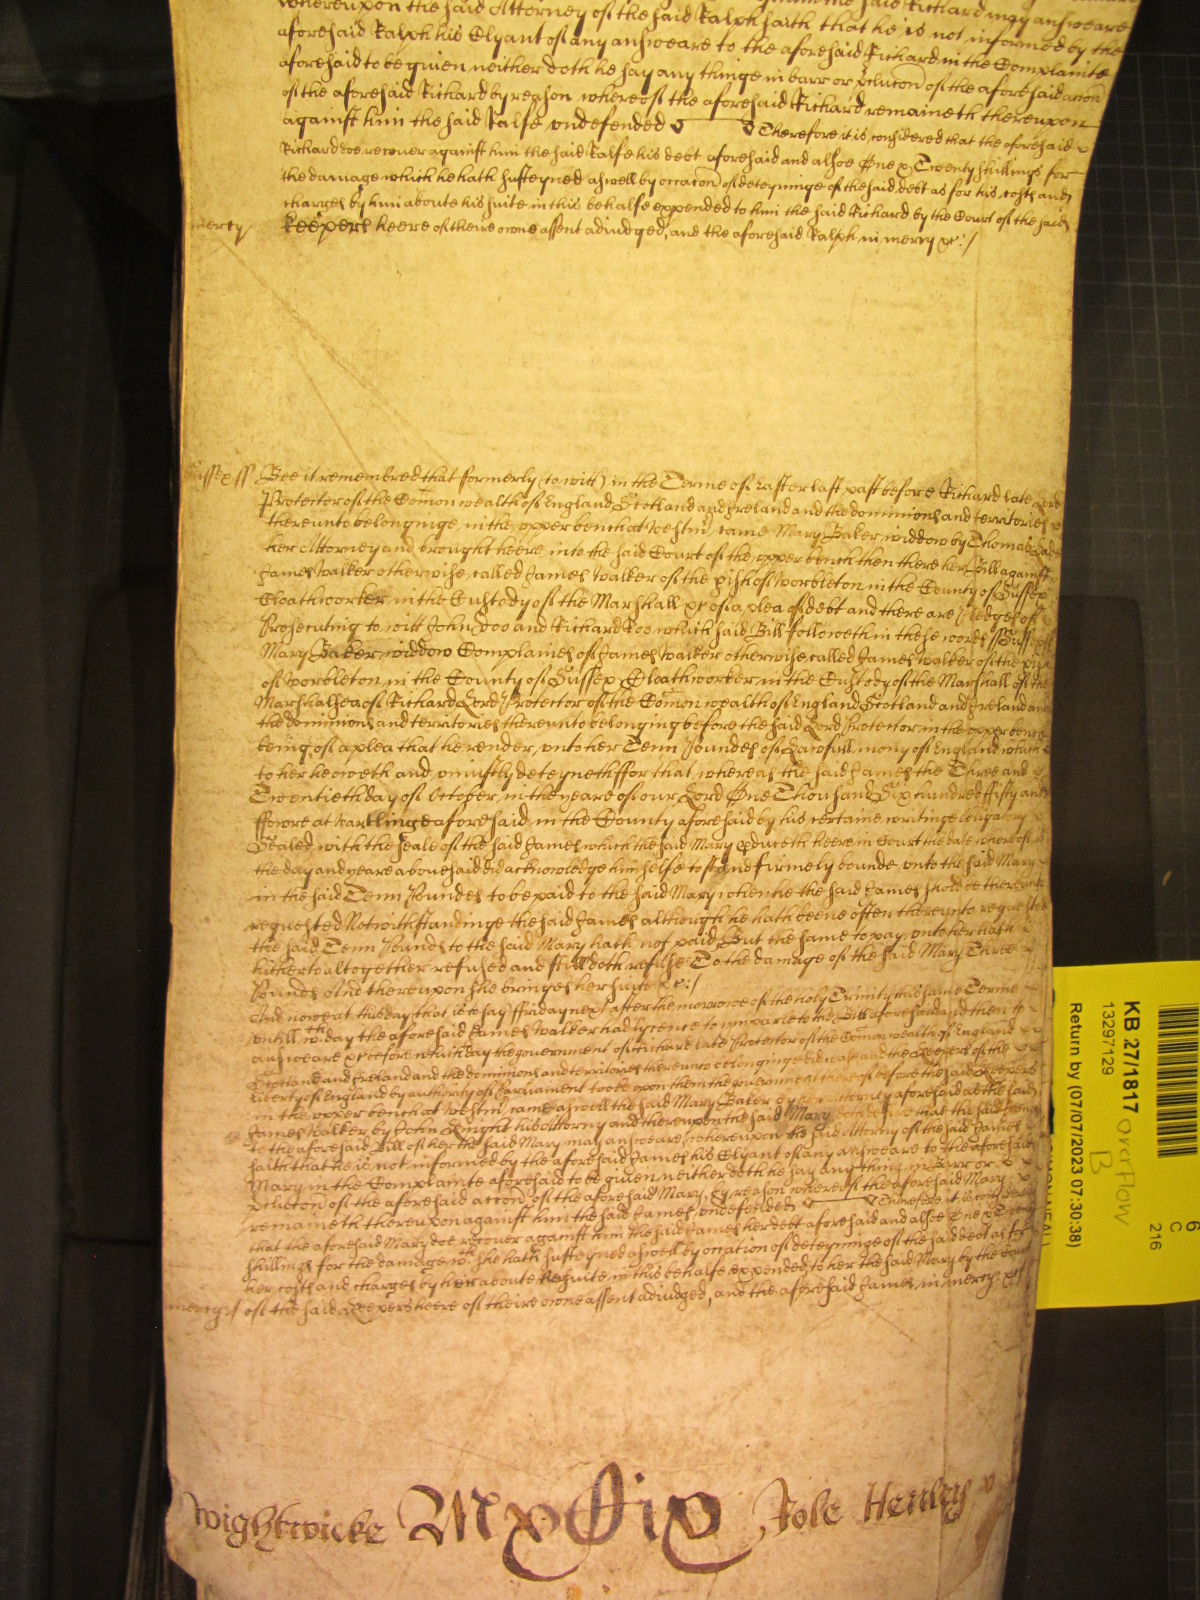 whereupon the said Attorney of the said Ralph saith that he is not informed by the
aforesaid Ralph his Clyant of any answeare to the aforesaid Richard in the Complainte
aforesaid to be given neither doth he say any thinge in barr or of the aforesaid accon
of the aforesaid Richard by reason whereof the aforesaid Richard remaineth thereupon
against him the said Ralfe undefended Therefore it is considered that the aforesaid
Richard doe recover against him the said Ralfe his debt aforesaid and alsoe One & Twenty shillings for
the damage which he hath susteyned aswell by occacon of deteyninge of the said debt as for his costs and
charges by him aboute his suite in this behalfe expended to him the said Richard by the Court of the said
mercy keepers heere of theire owne assent adiudged, and the aforesaid Ralph in mercy &c:/
Sussex ss Bee it remembred that formerly (to witt) in the Terme of Easter last past before Richard late Lord
Protector of the Comonwealth of England Scotland and Ireland and the dominions and territories
thereunto belonginge, in the upper bench at Westmr came Mary Baker widdow by Thomas
her Attorney and brought heere into the said Court of the upper bench then there her Bill against
James Walker otherwise called James Walker of the pish of Worbleton in the County of Sussex
Cloathworker in the Custody of the Marshall &c of a plea of debt and there are Pledges of
Prosecuting to witt John Doo and Richard Roo which said Bill followeth in these words ss Sussex ss
Mary Baker widdow Complaines of James Walker otherwise called James Walker of the pish
of Worbleton in the County of Sussex Cloathworker in the Custody of the Marshall of the
Marshalsea of Richard Lord Protector of the Comonwealth of England Scotland and Ireland and
the dominions and territories thereunto belonging before the said Lord Protector in the upper bench
being, of a plea that he render unto her Tenn Poundes of Lawfull mony of England which
to her he oweth and uniustly deteyneth ffor that whereas the said James the Three and
Twentieth day of October in the yeare of our Lord One Thousand Six hundred ffifty and
ffowre at aforesaid in the County aforesaid by his certaine writinge obligatory
Sealed with the seale of the said James which the said Mary pduceth heere in Court the date whereof is
the day and yeare abovesaid did acknowledge himselfe to stand firmely bounde unto the said Mary
in the said Tenn Poundes to be paid to the said Mary when he the said James should be thereunto
requested Notwithstandinge the said James although he hath beene often thereunto requested
the said Tenn Pounds to the said Mary hath not paid But the same to pay unto her hath
hitherto altogether refused and still doth refuse To the damage of the said Mary Three
Pounds And thereupon she bringes her suite &c:/
And now at this day that is to say ffriday next after the morrowe of the holy Trinity this same Terme
untill wch day the aforesaid James Walker had lycence to imparle to the Bill aforesaid and then to
answeare &c before wch day the government of Richard late Protector of the Comonwealth of England
Scotland and Ireland and the dominions and territories thereunto belonginge did cease and the Keepers of the
liberty of England by authority of Parliament tooke upon them the government thereof before the said Keepers
in the upper bench at Westmr came aswell the said Mary Baker by her Attorney aforesaid as the said
James Walker by John his Attorny and thereupon the said Mary that the said James
to the aforesaid Bill of her the said Mary may answeare, whereupon the said Attorny of the said James
saith that he is not informed by the aforesaid James his Clyant of any answeare to the aforesaid
Mary in the Complainte aforesaid to be given neither doth he say any thing in Barr or
of the aforesaid accon of the aforesaid Mary, by reason whereof the aforesaid Mary
remaineth thereupon against him the said James undefended Therefore it is considered
that the aforesaid Mary doe recover against him the said James her debt aforesaid and alsoe One & Twenty
shillings for the damage wch she hath susteyned aswell by occation of deteyninge of the said debt as for
her costs and charges by her aboute her suite in this behalfe expended to her the said Mary by the Court
mercy:/ of the said Keepers heere of theire owne assent adiudged, and the aforesaid James in mercy &c
Wightwicke MxCix Jole Henley
KB 27/1817 overflow
B
13297129
Return by (07/07/2023 07:30:38)
6
C
216